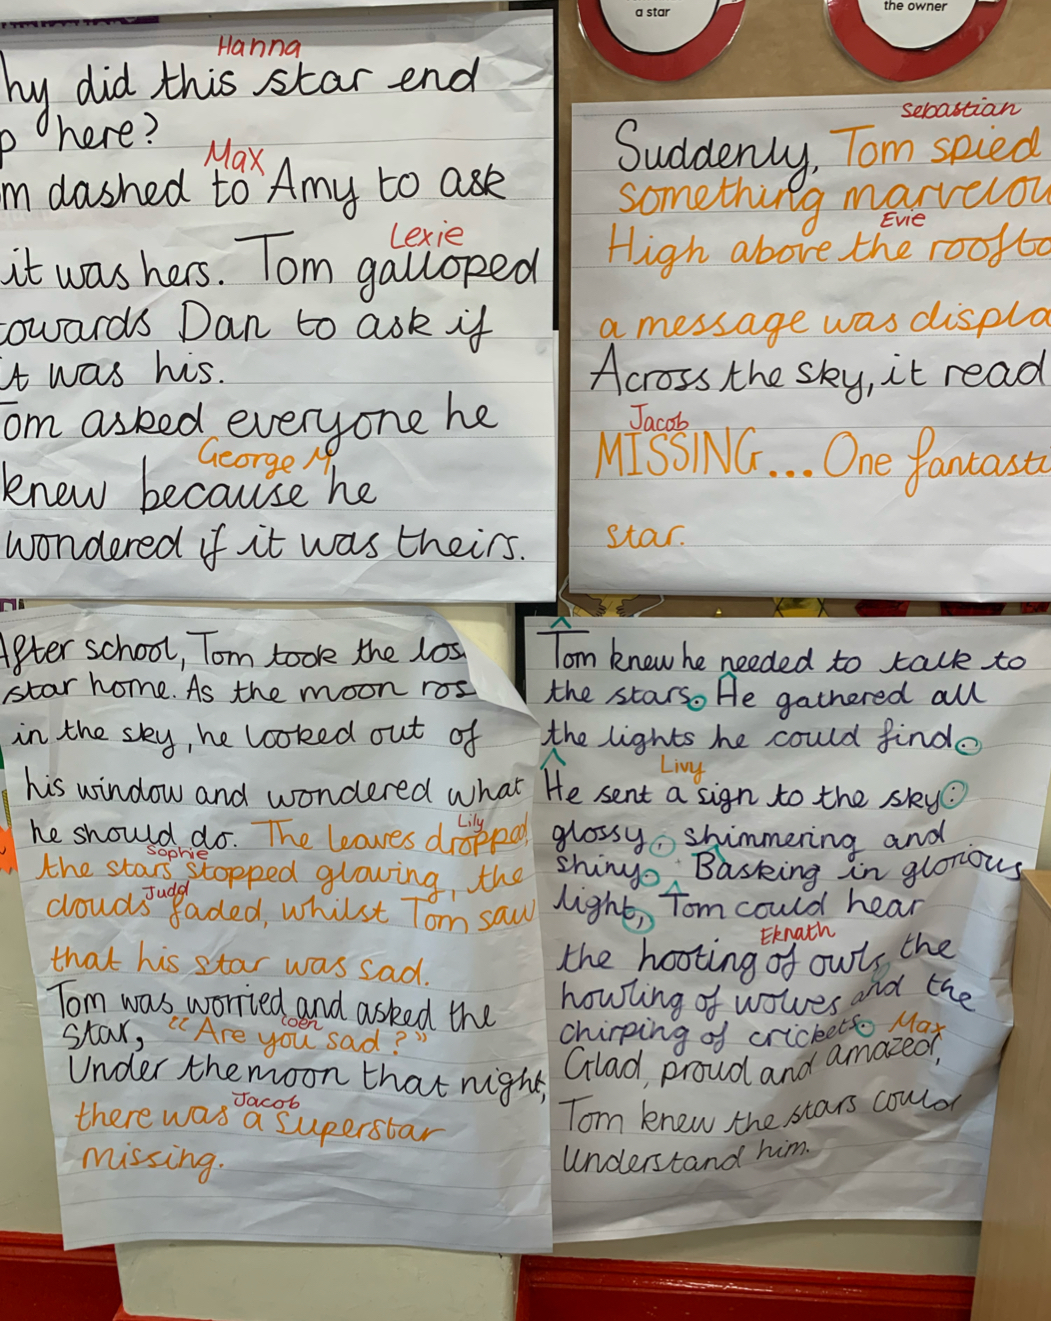 a star
the owner
Hanna
hy did this star end
p here?
Max
m dashed to Amy to ask
Lexie
it was hers. Tom galloped
towards Dan to ask if
it was his.
Tom asked everyone he
George M
knew because he
wondered if it was theirs.
Sebastian
Suddenly, Tom spied
something marvelou
Evie
High above the roofto
a message was displa
Across the sky, it read
Jacob
MISSING... One fantasti
star.
After school, Tom took the los
star home. As the moon ros
in the sky, he looked out of
his window and wondered what
Lily
he should do. The leaves dropped,
Sophie
the stars stopped glowing, the
Judd
clouds faded, whilst Tom saw
that his star was sad.
Tom was worried and asked the
coen
star, "Are you sad?"
Under the moon that night,
Jacob
there was a superstar
missing.
Tom knew he needed to talk to
the stars. He gathered all
the lights he could find.
Livy
He sent a sign to the sky:
glossy, shimmering and
shiny. Basking in glorious
light, Tom could hear
Eknath
the hooting of owls, the
howling of wolves and the
chirping of crickets. Max
Glad, proud and amazed,
Tom knew the stars could
understand him.